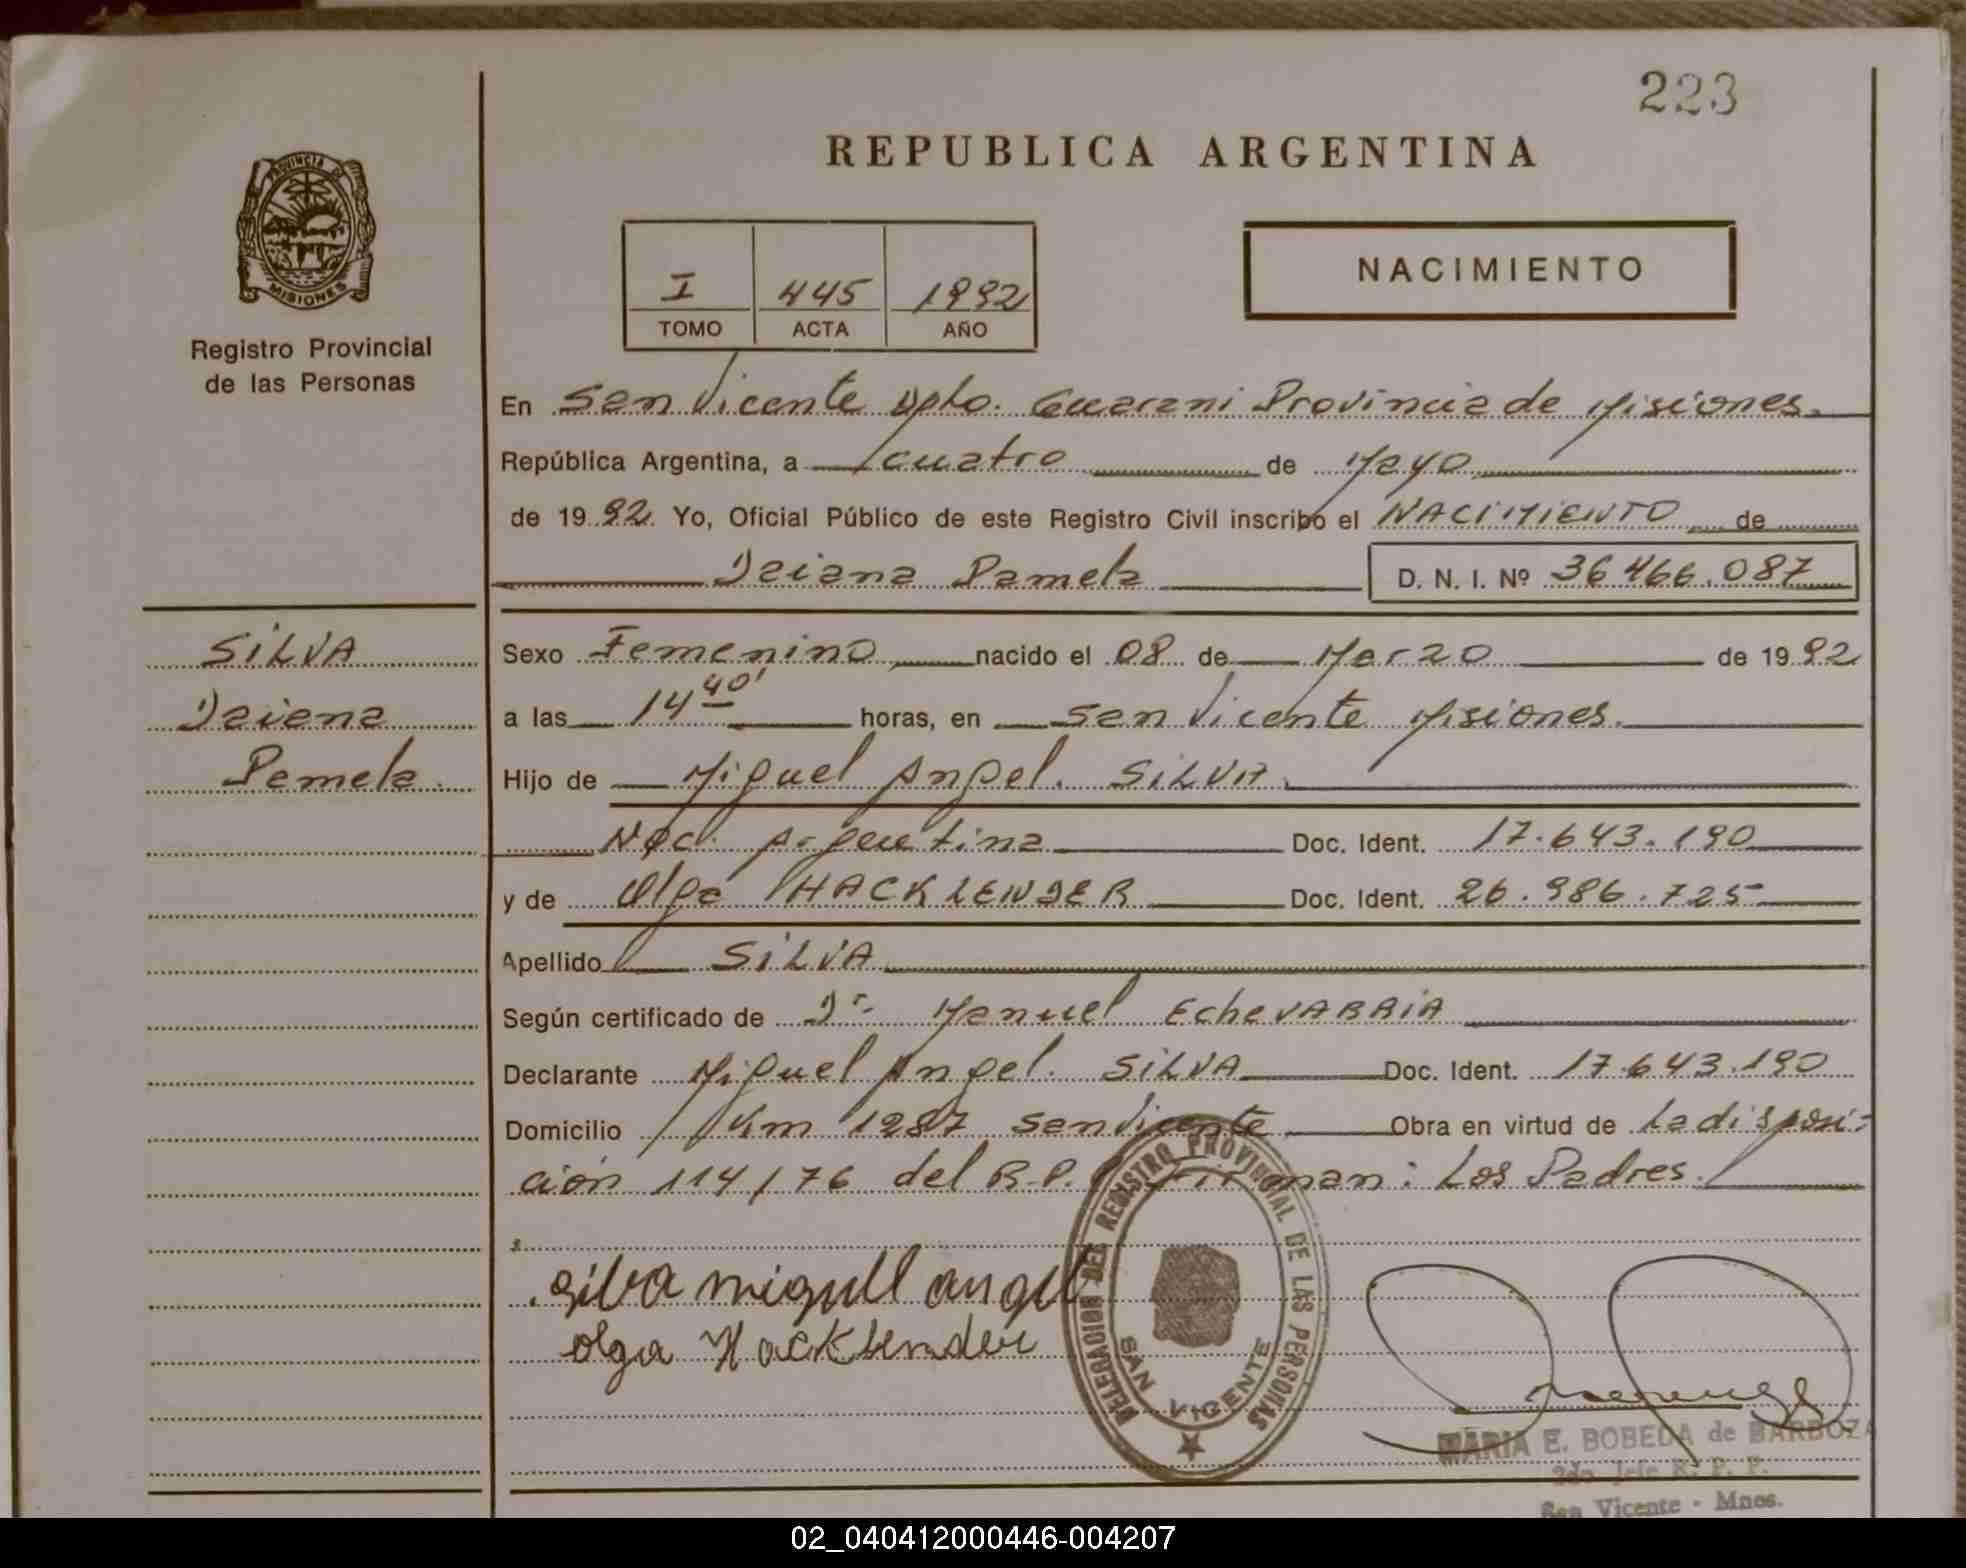 223
REPUBLICA ARGENTINA
PROVINCIA DE
MISIONES
Registro Provincial
de las Personas
I 445 1992
TOMO ACTA AÑO
NACIMIENTO
En San Vicente Dpto. Guarani Provincia de Misiones.
República Argentina, a cuatro de Mayo
de 1992 Yo, Oficial Público de este Registro Civil inscribo el NACIMIENTO de
Daiana Pamela D. N. I. Nº 36466.087
SILVA
Daiana
Pamela.
Sexo Femenino nacido el 08 de Marzo de 1992
a las 14 40' horas, en San Vicente Misiones.
Hijo de Miguel Angel. SILVA.
Nac. Argentina Doc. Ident. 17.643.190
y de Olga HACKLENDER Doc. Ident. 26.986.725
Apellido SILVA
Según certificado de Dr. Manuel EcheVARRIA
Declarante Miguel Angel. SILVA Doc. Ident. 17.643.190
Domicilio Km 1287 San Vicente Obra en virtud de La disposi-
ción 114/76 del R.P. Firman: Los Padres.
silva miguel angel
olga Hacklender
DELEGACION DEL REGISTRO PROVINCIAL DE LAS PERSONAS
SAN VICENTE
MARIA E. BOBEDA de BARBOZA
2do Jefe R. P. P.
San Vicente - Mnes.
02_040412000446-004207